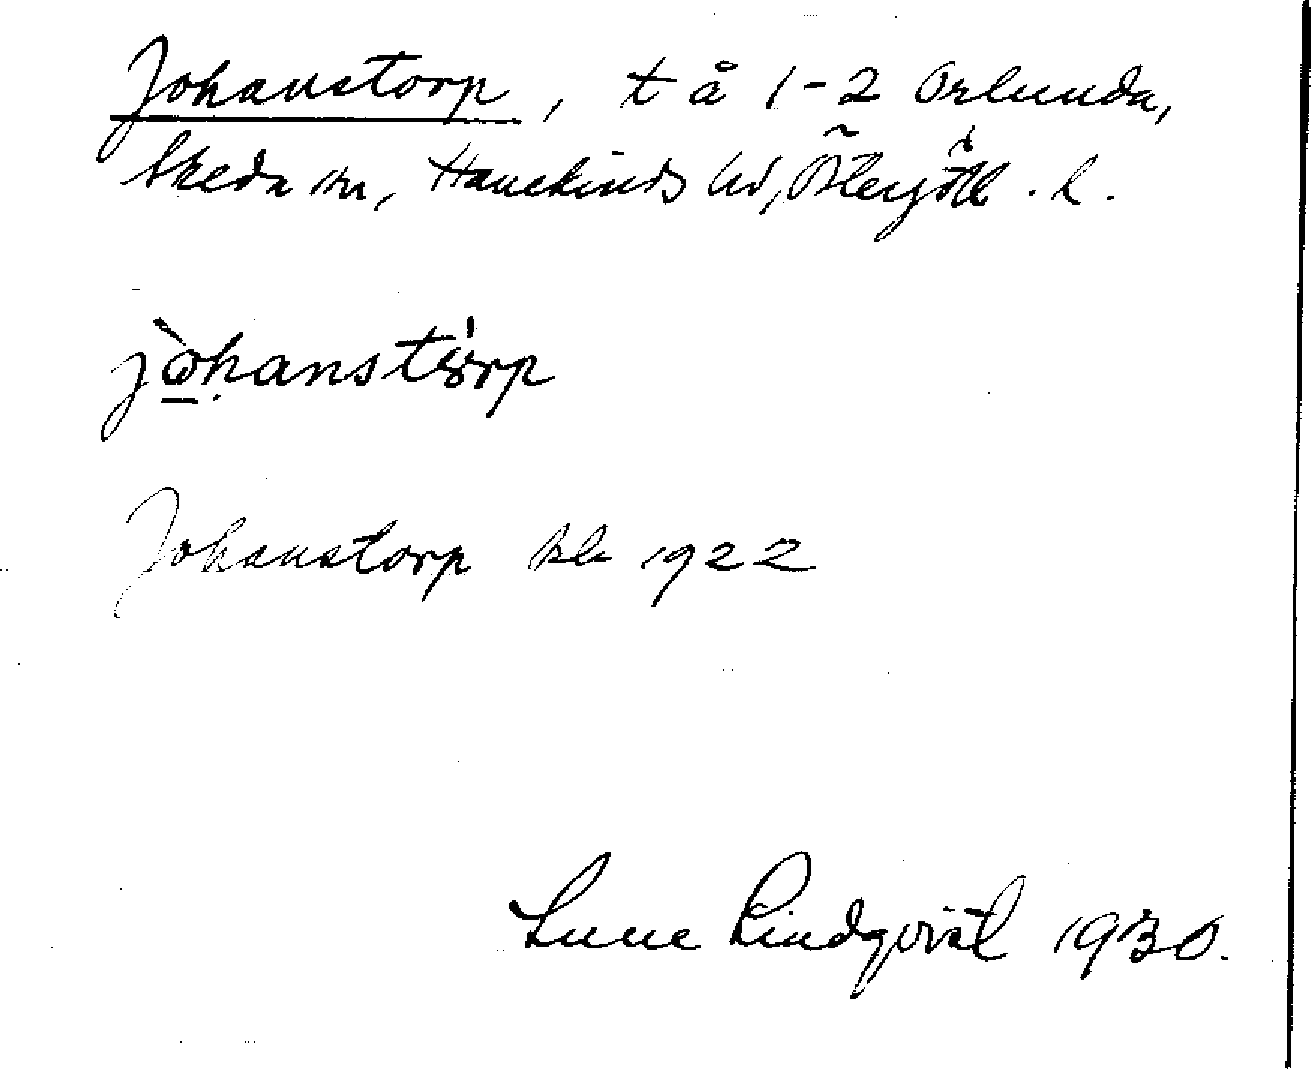 Johanstorp, t å 1-2 Orlunda,
Skeda sn, Hanekinds hd, Östergötl. l.
jòhanstórp
Johanstorp bl 1922
Sune Lindqvist 1930.